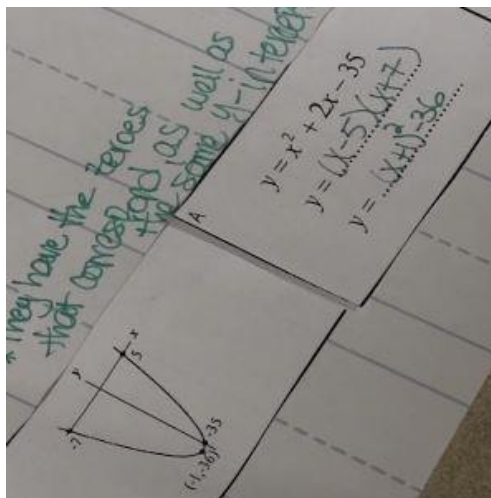 * They have the zeroes
that correspond as well as
the same y-intercept
A
y = x² + 2x − 35
y = (x-5)(x+7)
y = (x+1)²-36
y
x
-7
5
-35
(-1,-36)